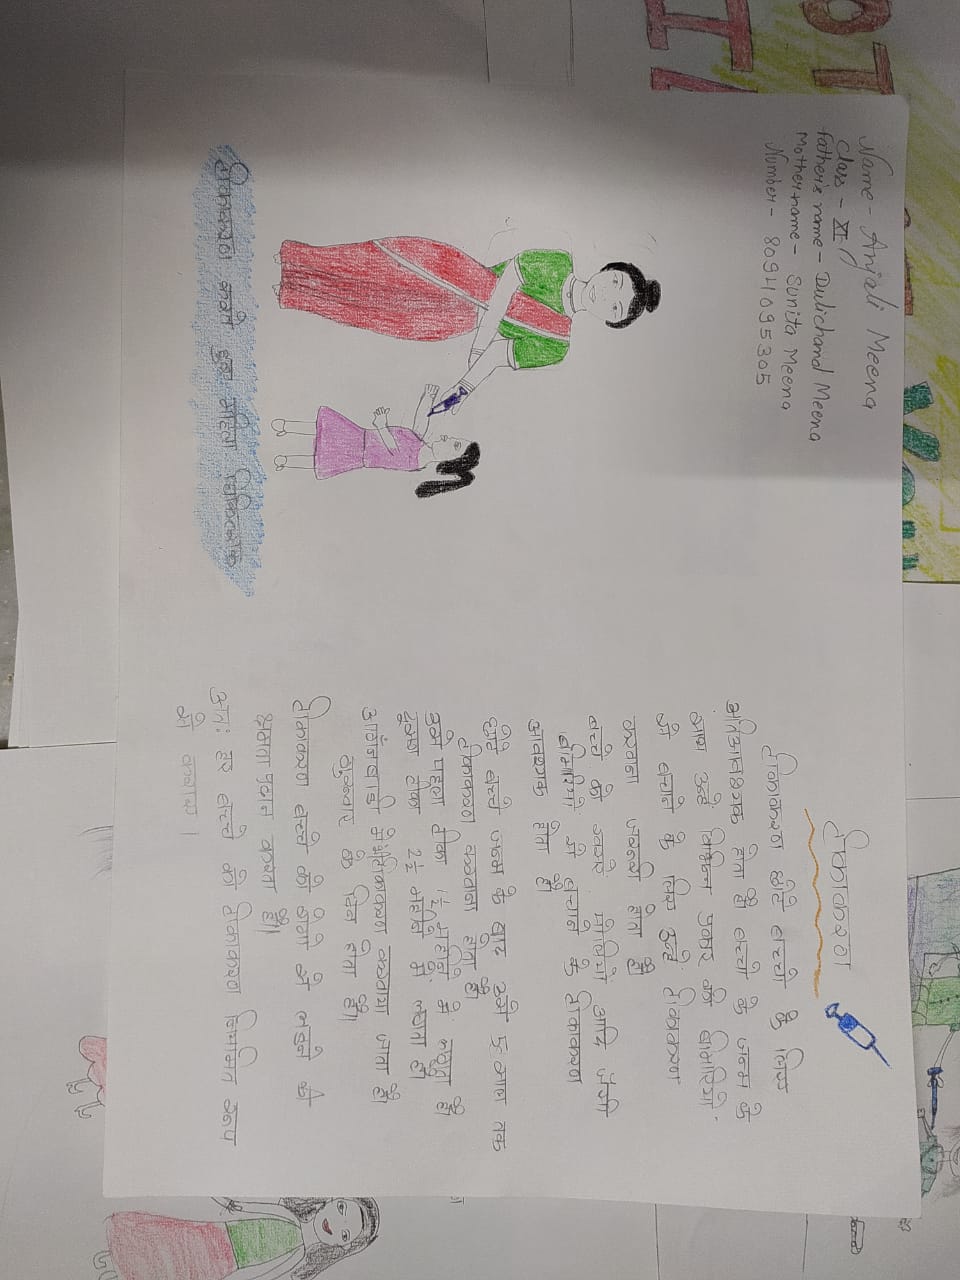 Name - Anjali Meena
Class - XI
Father's name - Dulichand Meena
Mother name - Sunita Meena
Number - 8094095305
टीकाकरण करते हुए महिला चिकित्सक
टीकाकरण
टीकाकरण छोटे बच्चो के लिए
अतिआवश्यक होता है बच्चो के जन्म के
साथ उन्हें विभिन्न प्रकार की बीमारियो
से बचाने के लिए उन्हें टीकाकरण
करवाना जरूरी होता है
बच्चो को खसरे पोलियो आदि जैसी
बीमारियो से बचाने के टीकाकरण
आवश्यक होता है
छोटे बच्चे जन्म के बाद उसे 5 साल तक
टीकाकरण करवाना होता है।
उसे पहला टीका 1½ महीने में लगता है।
दूसरा टीका 2½ महीने में लगता है
आंगनबाडी में टीकाकरण करवाया जाता है
गुरूवार के दिन होता है।
टीकाकरण बच्चो को रोगो से लडने की
क्षमता प्रदान करता है।
अतः हर बच्चे को टीकाकरण नियमित रूप
से करवाए।